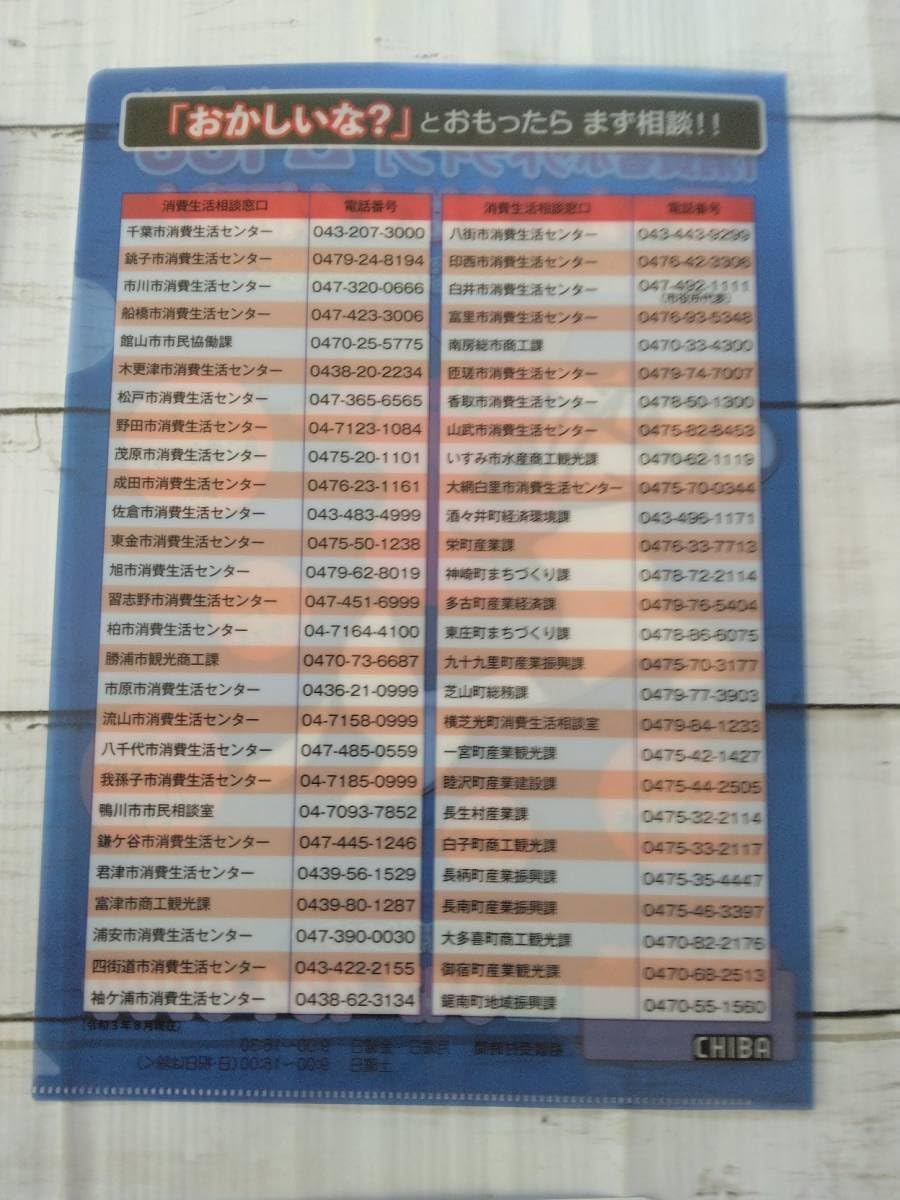 「おかしいな?」とおもったら まず相談!!
消費生活相談窓口 電話番号
千葉市消費生活センター 043-207-3000
銚子市消費生活センター 0479-24-8194
市川市消費生活センター 047-320-0666
船橋市消費生活センター 047-423-3006
館山市市民協働課 0470-25-5775
木更津市消費生活センター 0438-20-2234
松戸市消費生活センター 047-365-6565
野田市消費生活センター 04-7123-1084
茂原市消費生活センター 0475-20-1101
成田市消費生活センター 0476-23-1161
佐倉市消費生活センター 043-483-4999
東金市消費生活センター 0475-50-1238
旭市消費生活センター 0479-62-8019
習志野市消費生活センター 047-451-6999
柏市消費生活センター 04-7164-4100
勝浦市観光商工課 0470-73-6687
市原市消費生活センター 0436-21-0999
流山市消費生活センター 04-7158-0999
八千代市消費生活センター 047-485-0559
我孫子市消費生活センター 04-7185-0999
鴨川市市民相談室 04-7093-7852
鎌ケ谷市消費生活センター 047-445-1246
君津市消費生活センター 0439-56-1529
富津市商工観光課 0439-80-1287
浦安市消費生活センター 047-390-0030
四街道市消費生活センター 043-422-2155
袖ケ浦市消費生活センター 0438-62-3134
(令和3年8月現在)
消費生活相談窓口 電話番号
八街市消費生活センター 043-443-9299
印西市消費生活センター 0476-42-3306
白井市消費生活センター 047-492-1111
(市役所代表)
富里市消費生活センター 0476-93-5348
南房総市商工課 0470-33-4300
匝瑳市消費生活センター 0479-74-7007
香取市消費生活センター 0478-50-1300
山武市消費生活センター 0475-82-8453
いすみ市水産商工観光課 0470-62-1119
大網白里市消費生活センター 0475-70-0344
酒々井町経済環境課 043-496-1171
栄町産業課 0476-33-7713
神崎町まちづくり課 0478-72-2114
多古町産業経済課 0479-76-5404
東庄町まちづくり課 0478-86-6075
九十九里町産業振興課 0475-70-3177
芝山町総務課 0479-77-3903
横芝光町消費生活相談室 0479-84-1233
一宮町産業観光課 0475-42-1427
睦沢町産業建設課 0475-44-2505
長生村産業課 0475-32-2114
白子町商工観光課 0475-33-2117
長柄町産業振興課 0475-35-4447
長南町産業振興課 0475-46-3397
大多喜町商工観光課 0470-82-2176
御宿町産業観光課 0470-68-2513
鋸南町地域振興課 0470-55-1560
CHIBA